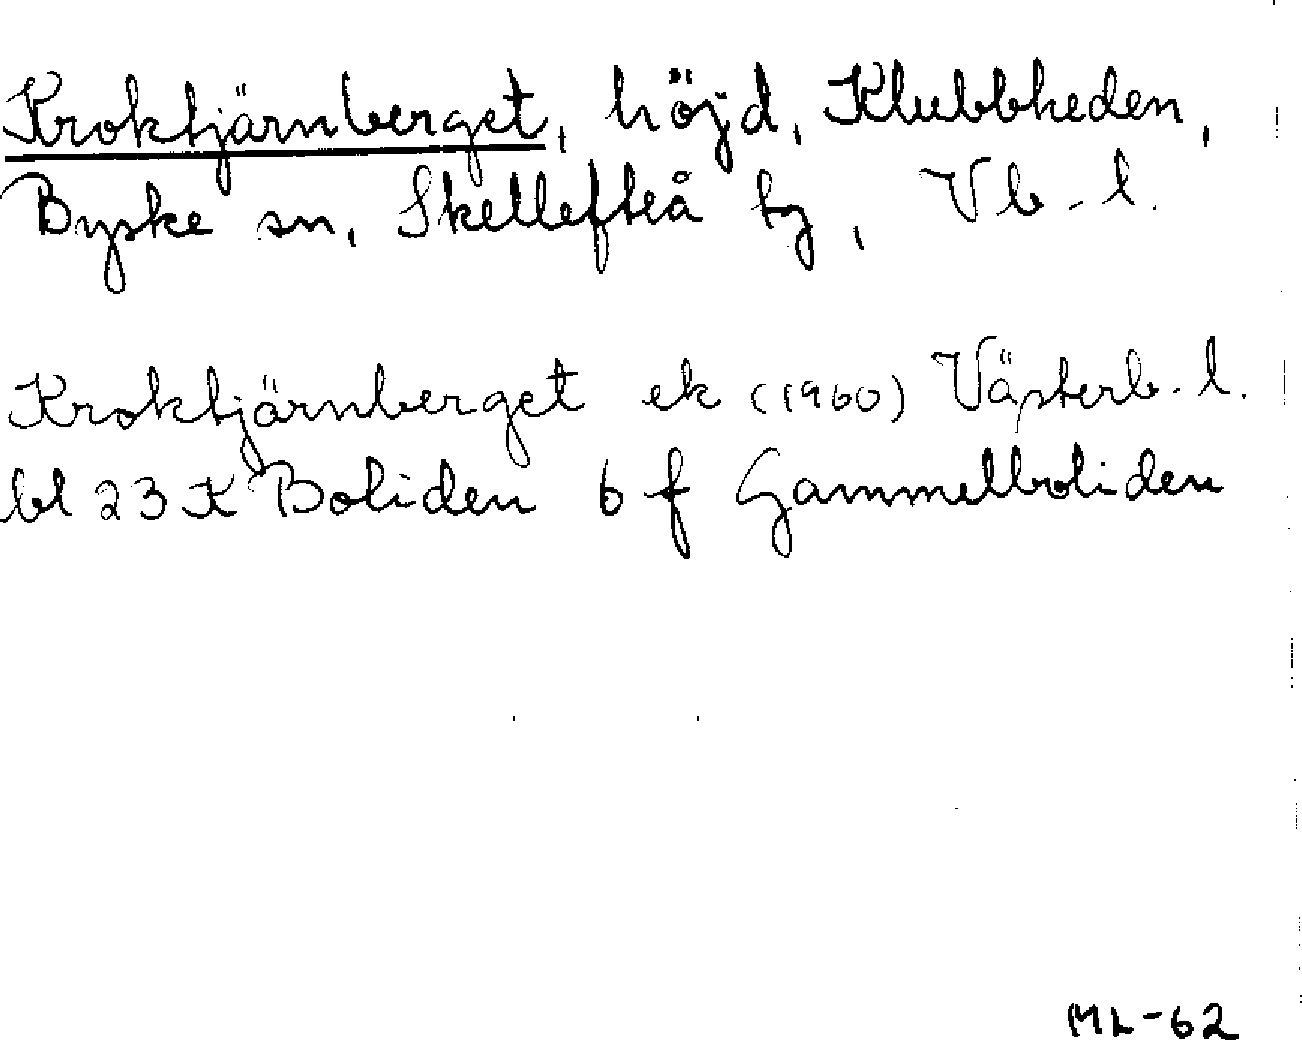 Kroktjärnberget, höjd, Klubbheden,
Byske sn, Skellefteå tg, Vb-l.
Kroktjärnberget ek (1960) Västerb-l.
bl 23 K Boliden 6 f Gammelboliden
ML-62